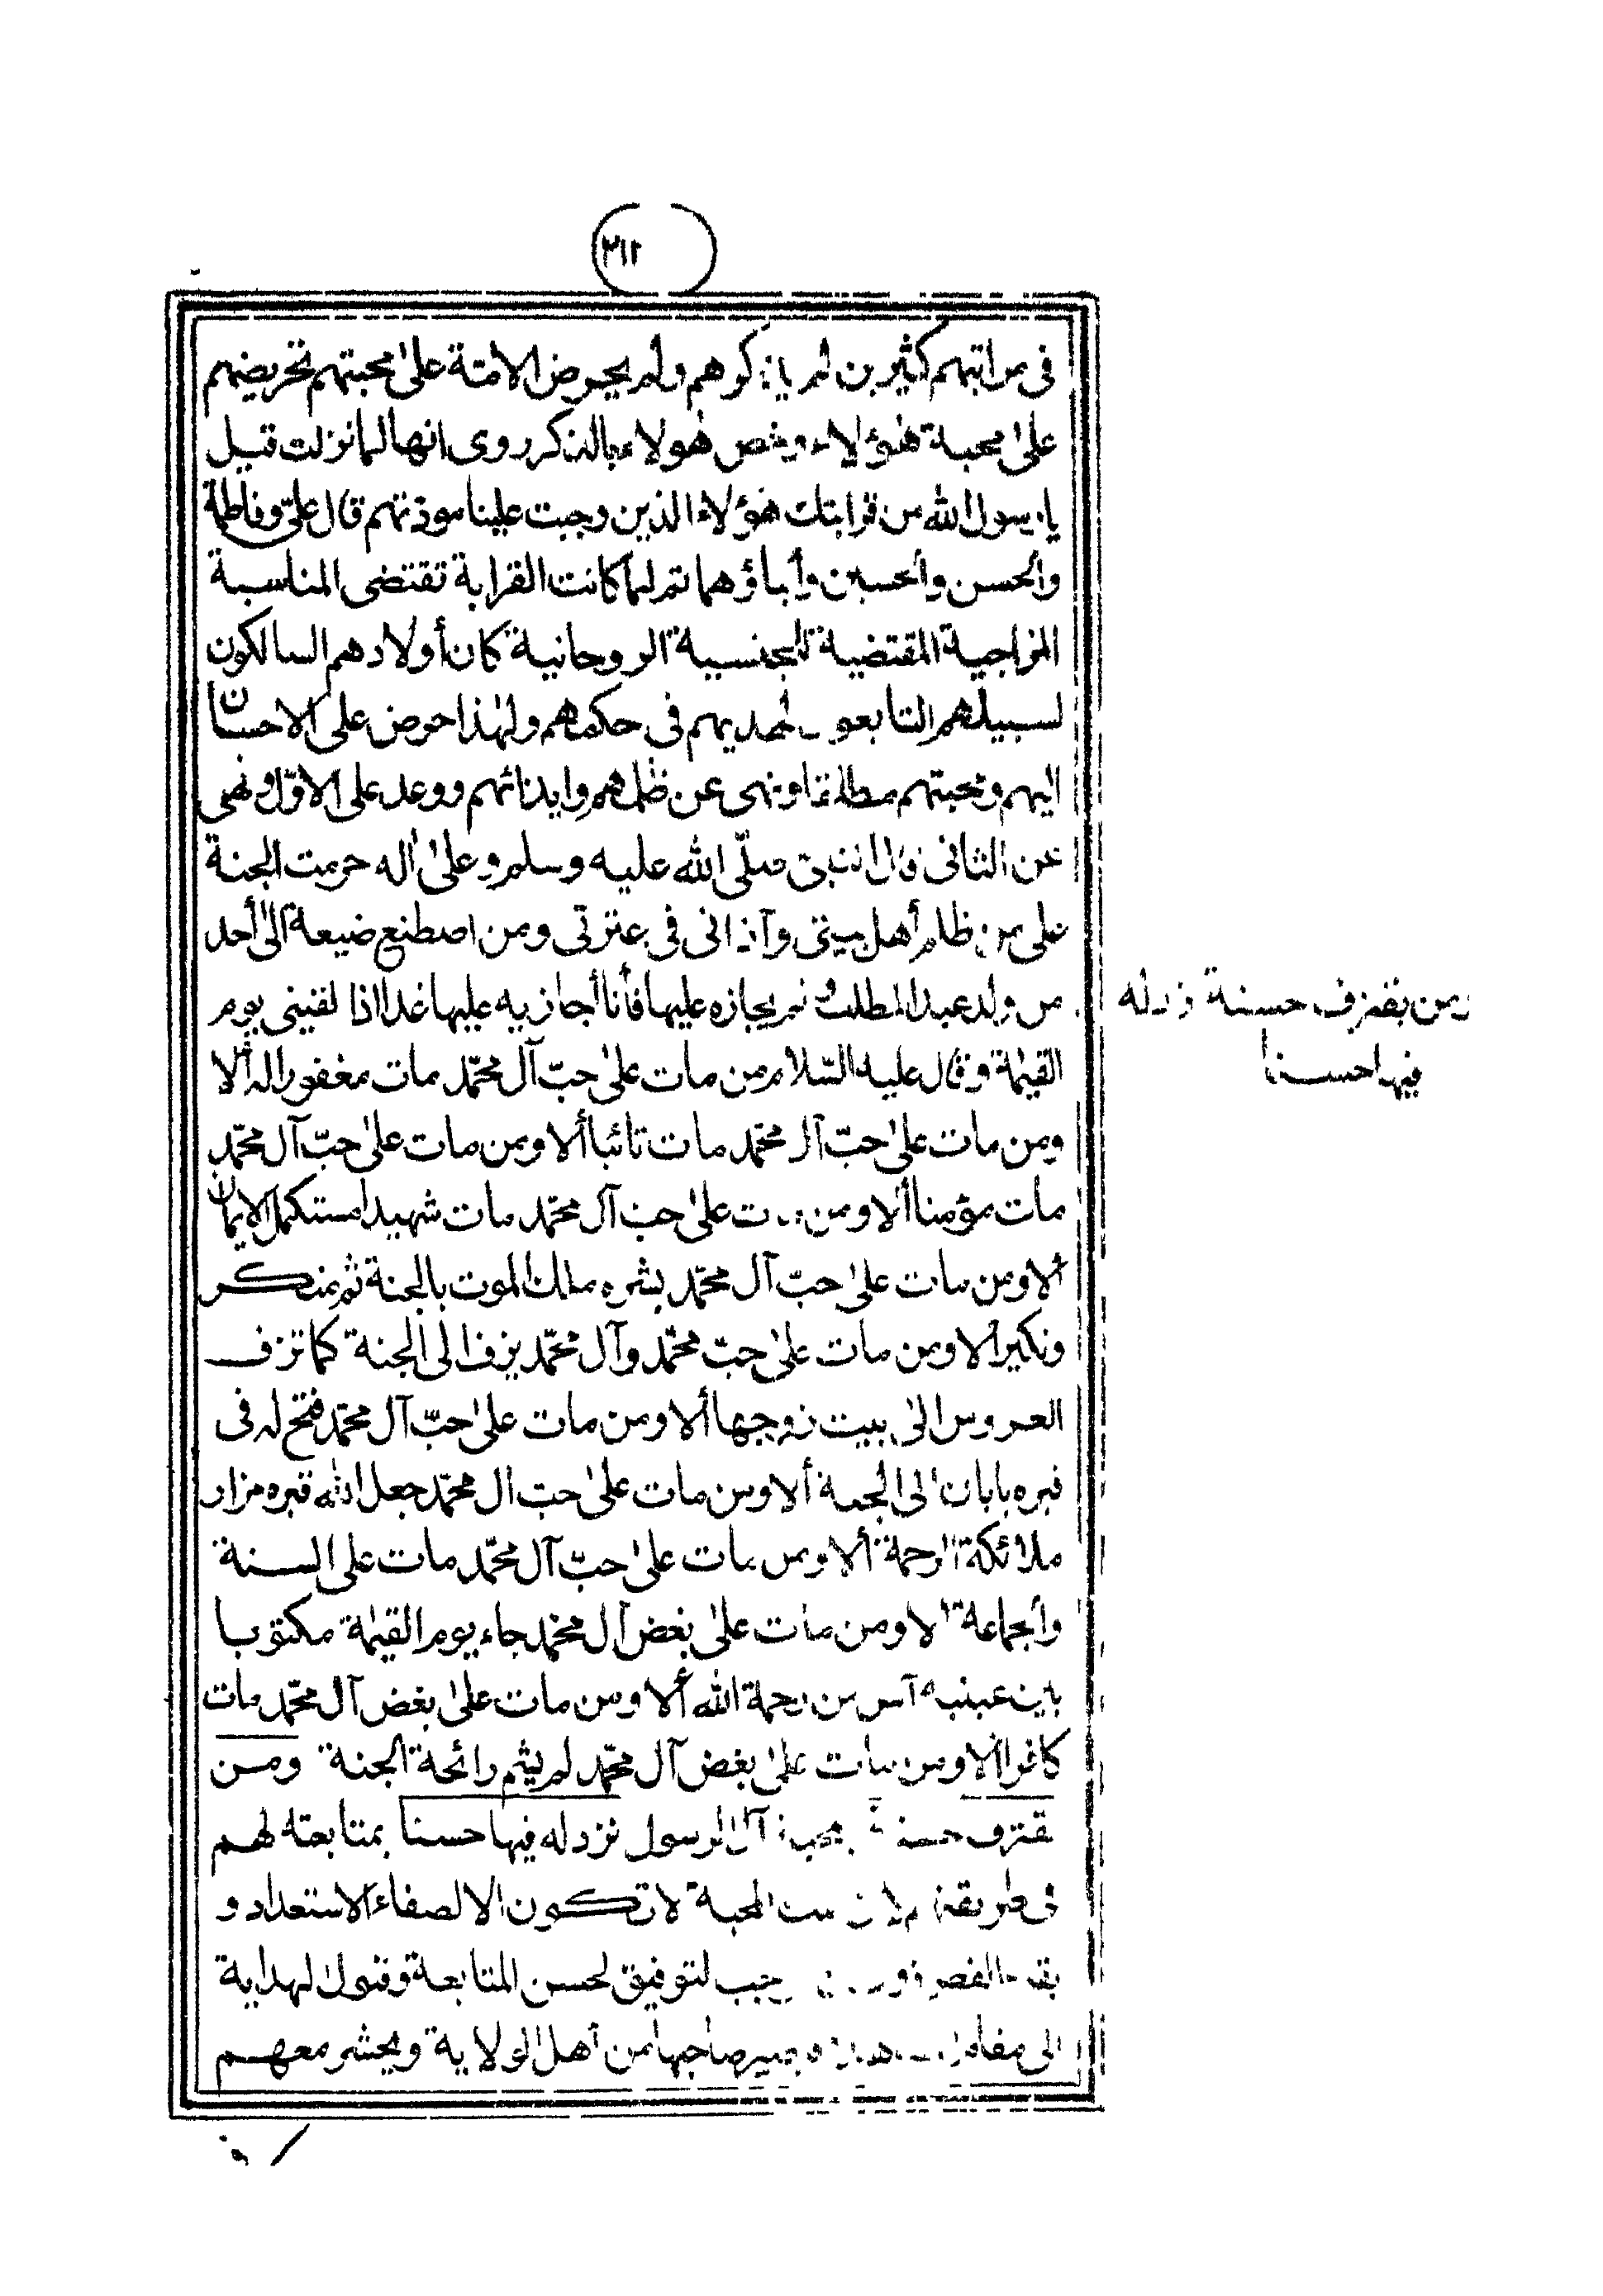 ٢١٢
فى مراتبهم كثيرين لم يذكرهم ولم يحرض الامة على محبتهم تحريضهم
على محبة هؤلاء وخص هولاء بالذكر روى انها لما نزلت قيل
يا رسول الله من قرابتك هؤلاء الذين وجبت علينا مودتهم قال علىّ وفاطمة
والحسن والحسين وأبناؤهما ثم لما كانت القرابة تقتضى المناسبة
المزاجية المقتضية للجنسية الروحانية كان أولادهم السالكون
لسبيلهم التابعون لهديهم فى حكمهم ولهذا حرض على الاحسان
اليهم ومحبتهم مطلقا ونهى عن ظلمهم وايذائهم ووعد على الاوّل ونهى
عن الثانى قال النبىّ صلّى الله عليه وسلم وعلى اله حرمت الجنة
على من ظلم أهل بيتى وآذانى فى عترتى ومن اصطنع ضيعة الى أحد
من ولد عبد المطلب ولم يجازه عليها فأنا أجازيه عليها غدا اذا لقينى يوم
القيمة وقال عليه السّلام من مات على حبّ آل محمّد مات مغفورا له ألا
ومن مات على حبّ آل محمّد مات تائبا ألا ومن مات على حبّ آل محمّد
مات مؤمنا ألا ومن مات على حب آل محمّد مات شهيدا مستكمل الايمان
ألا ومن مات على حبّ آل محمّد بشره ملك الموت بالجنة ثم منكر
ونكير ألا ومن مات على حبّ محمّد وآل محمّد يزف الى الجنة كما تزف
العروس الى بيت زوجها ألا ومن مات على حبّ آل محمّد فتح له فى
قبره بابان الى الجنة ألا ومن مات على حب ال محمّد جعل الله قبره مزار
ملائكة الرحمة ألا ومن مات على حبّ آل محمّد مات على السنة
والجماعة ألا ومن مات على بغض آل محمّد جاء يوم القيمة مكتوبا
بين عينيه آيس من رحمة الله ألا ومن مات على بغض آل محمّد مات
كافرا ألا ومن مات على بغض آل محمّد لم يشم رائحة الجنة ومن
يقترف حسنة بمحبة آل الرسول نزد له فيها حسنا بمتابعته لهم
فى طريقتهم لان المحبة لا تكون الا لصفاء الاستعداد و
بقاء الفطرة لتوفيق لحسن المتابعة وقبول الهداية
الى مقام صاحبها من أهل الولاية ويحشر معهم
ومن يقترف حسنة نزد له
فيها حسنا